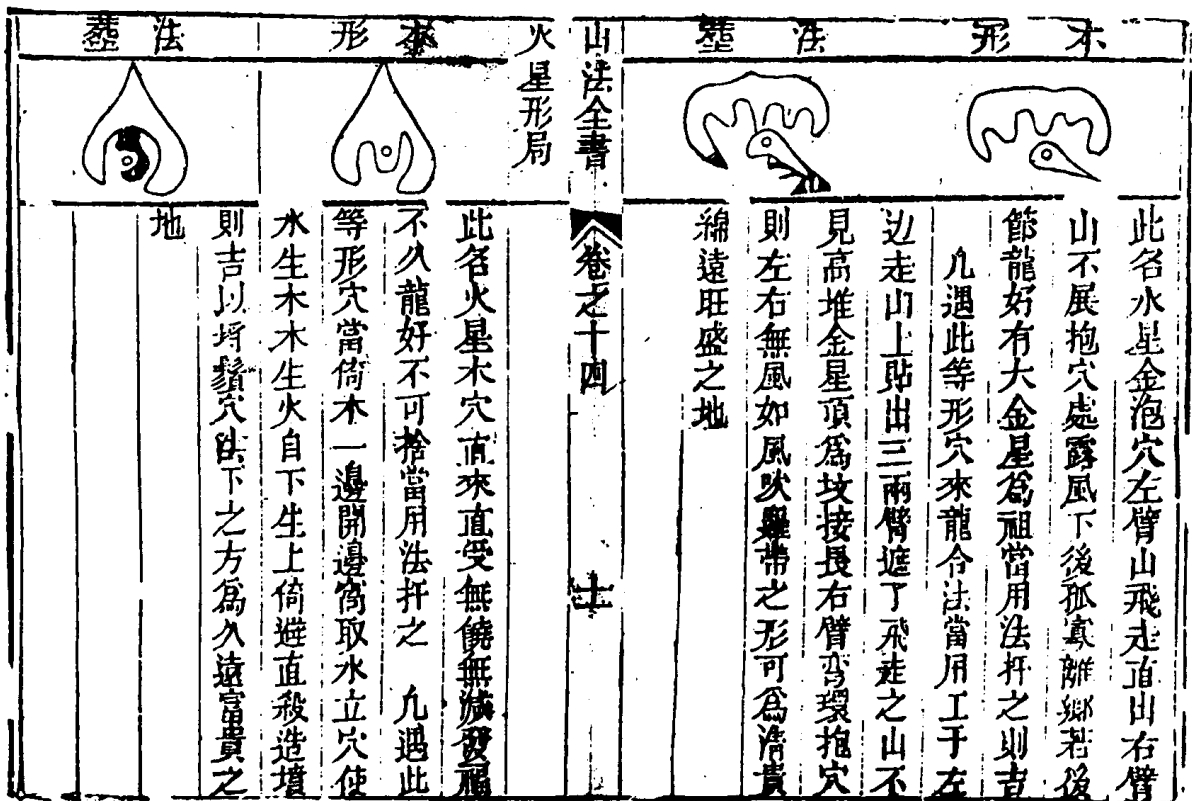 本形
法塟
此名水星金泡穴左臂山飛走直山右臂
山不展抱穴處露風下後孤寡離鄉若後
節龍好有大金星爲祖當用法扦之則吉
凢遇此等形穴來龍合法當用工于左
边走山上貼出三兩臂遮了飛走之山不
見高堆金星頂爲坟接長右臂弯環抱穴
則左右無風如風吹羅帶之形可爲清貴
綿遠旺盛之地
山法全書
卷之十四
十
火星形局
本形
法塟
此名火星木穴直來直受無饒無減發福
不久龍好不可捨當用法扦之 凢遇此
等形穴當倚木一邊開邊窩取水立穴使
水生木木生火自下生上倚避直殺造墳
則吉以将鬚穴法下之方爲久遠富貴之
地